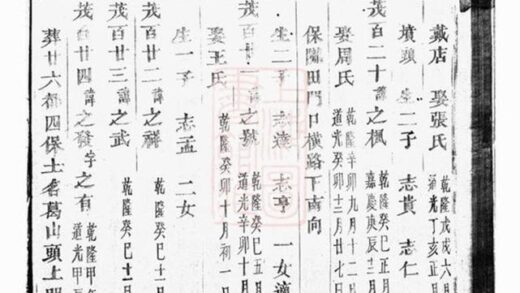 戴店 娶張氏 乾隆戊戌六月 道光丁亥正
墳頭 生二子 志貴 志仁
茂百二十 諱之楓 嘉慶庚辰
娶周氏 乾隆辛卯九月十二 道光癸卯十二月廿七日
保隴田門口橫路下南向
生二子 志達 志亨 一女適
茂百二十 諱之 乾隆癸巳五月 道光辛卯十月
娶王氏 乾隆癸卯十月初一
生一子 志孟 二女
茂百廿二 諱之 乾隆癸巳十
茂百廿三 諱之武 乾隆癸巳十二
茂百廿四 諱之發字之有 乾隆甲 道光甲
葬廿六都四保土名葛山頭上